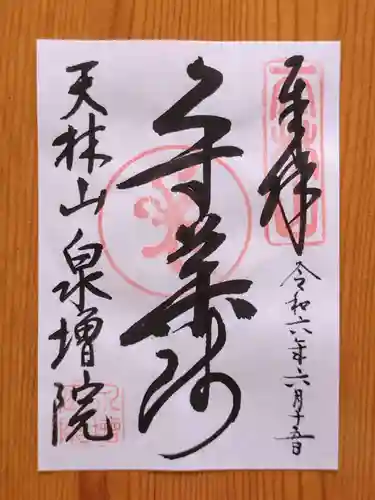 奉拝
令和六年六月十五日
薬师
天林山 泉増院